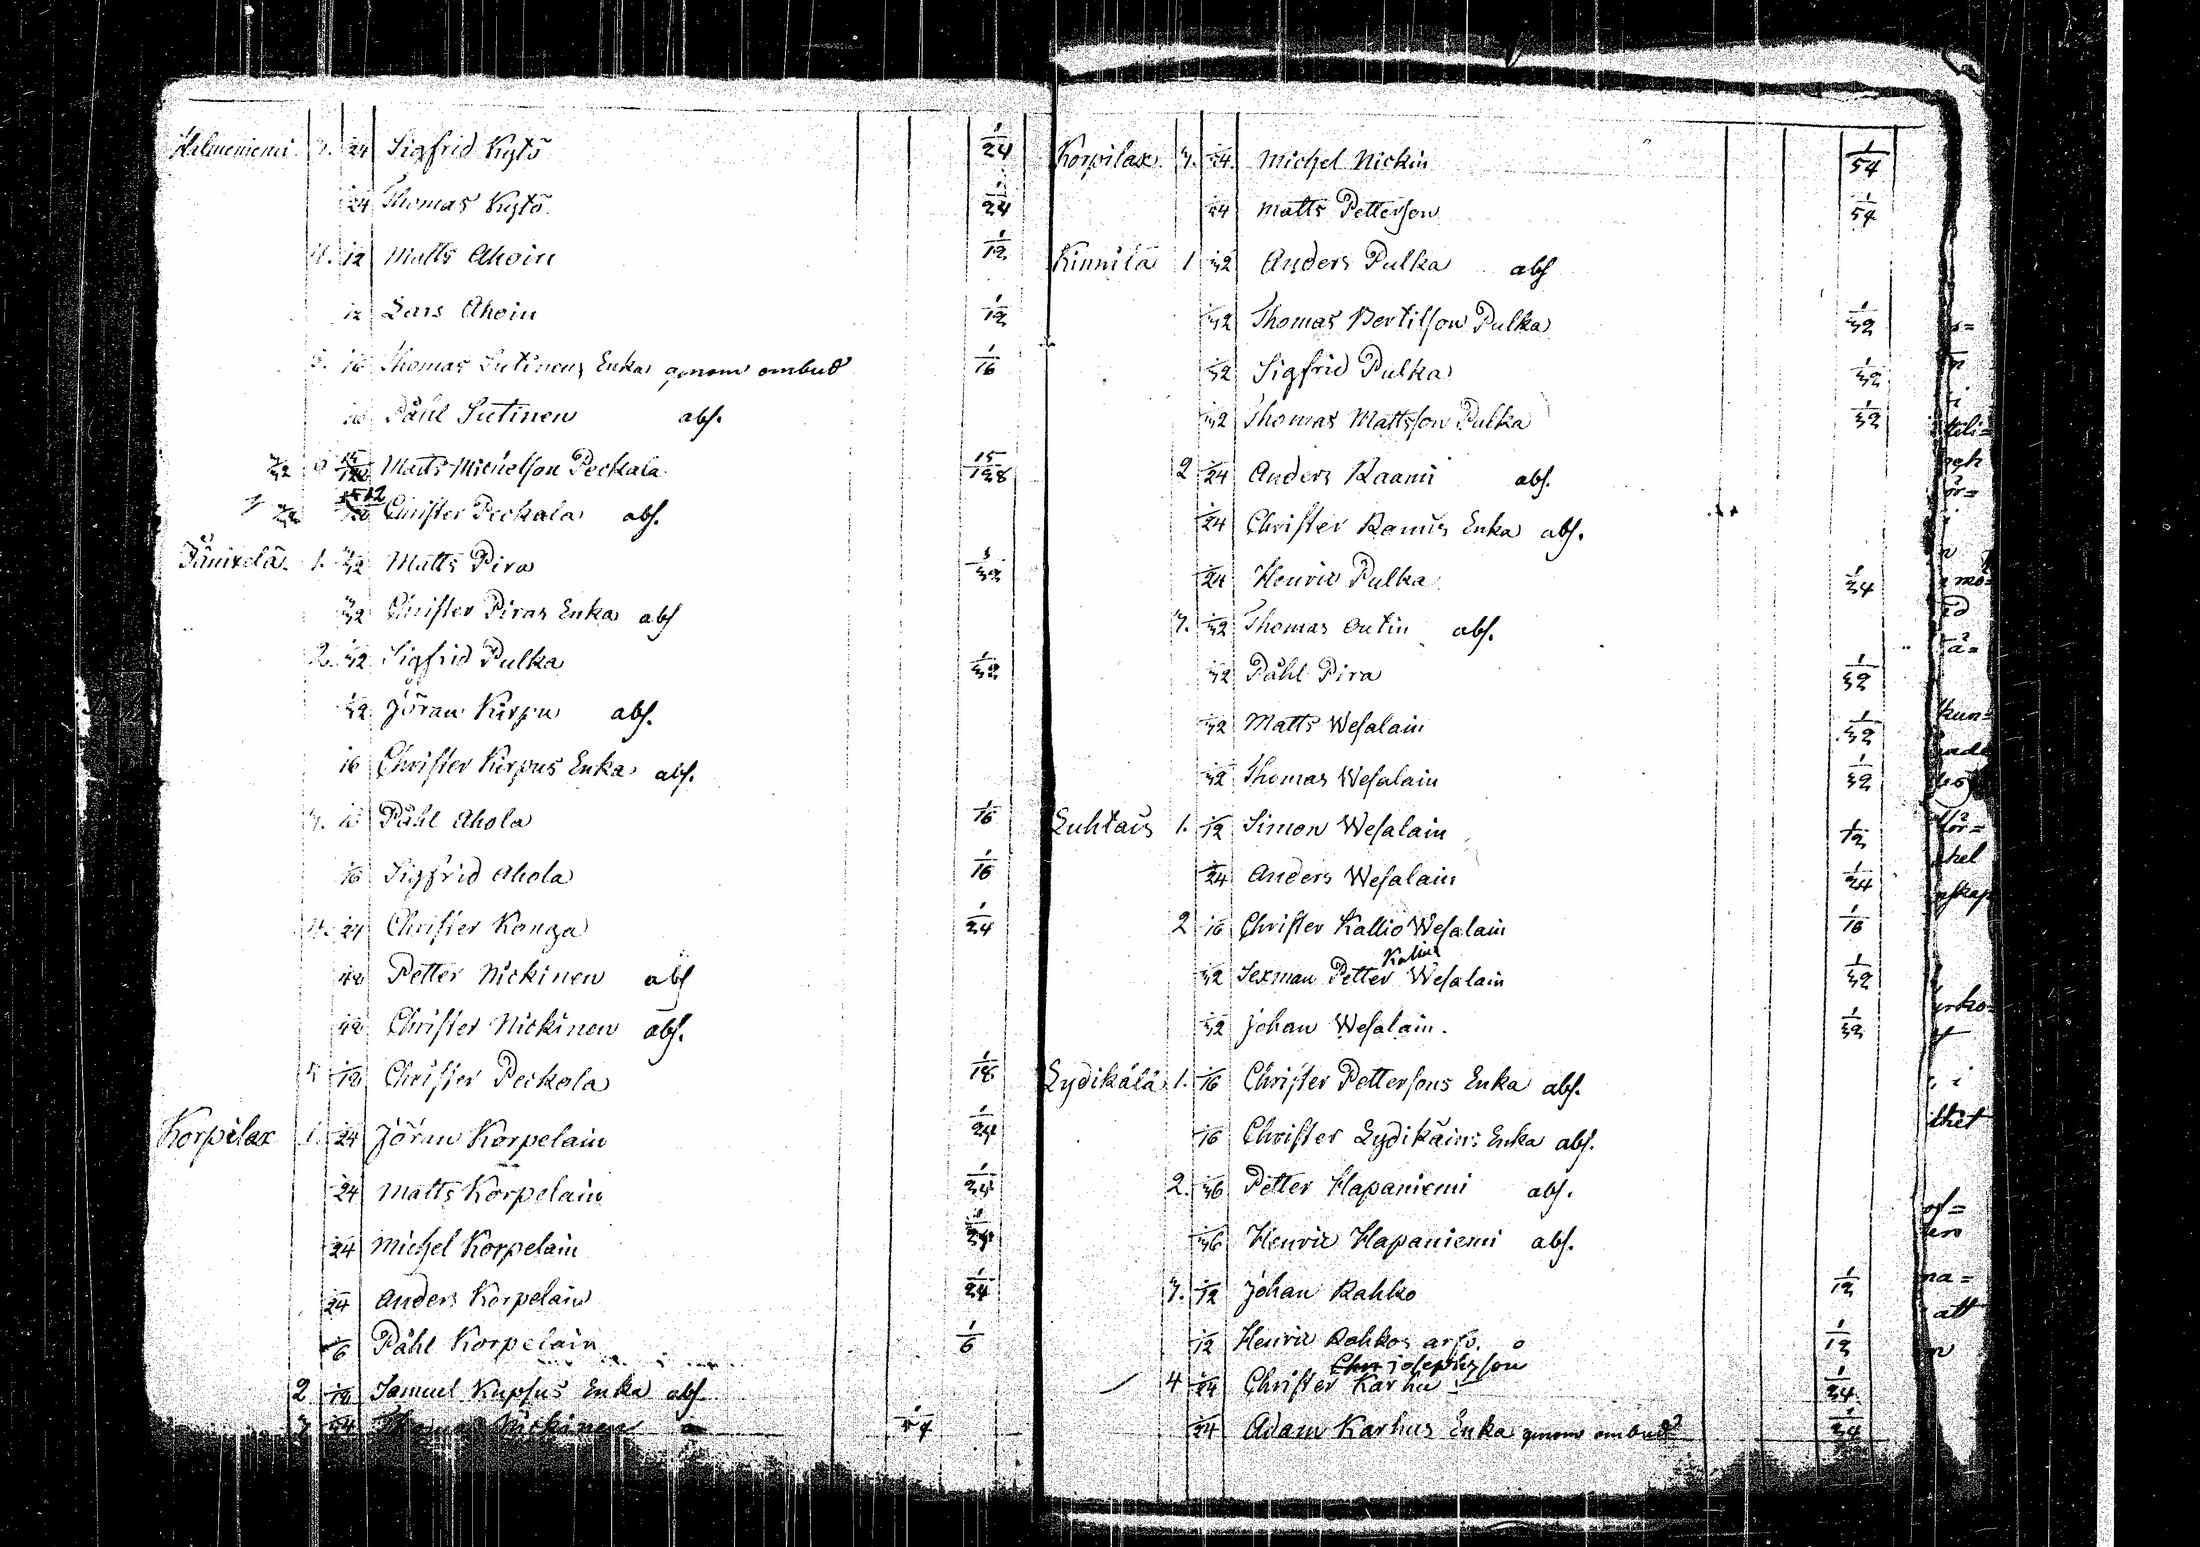 Halmeniemi 3. 1/24 Sigfrid Kytö 1/24
1/24 Thomas Kytö 1/24
4. 1/12 Matts Ahoin 1/12
1/12 Lars Ahoin 1/12
5. 1/16 Thomas Sutinens Enka genom ombud 1/16
1/16 Påhl Sutinen abs.
6 15/128 Matts Michelson Peckala 15/128
Christer Peckala abs.
1. 3/32 Matts Pira 3/32
3/32 Christer Piras Enka abs
2. 1/32 Sigfrid Pulka 1/32
1/32 Jöran Kirpu abs.
1/16 Christer Kirpus Enka abs.
3. 1/16 Påhl Ahola 1/16
1/16 Sigfrid Ahola 1/16
4. 1/24 Christer Konga 1/24
1/48 Petter Nickinen abs
1/48 Christer Nickinen abs.
5 1/18 Christer Peckola 1/18
Korpilax 1. 1/24 Jöran Korpelain 1/24
1/24 Matts Korpelain 1/24
1/24 Michel Korpelain 1/24
1/24 Anders Korpelain 1/24
1/6 Påhl Korpelain 1/6
2 1/18 Samuel Kupsus Enka abs
3 1/54 Thomas Nickinen 1/54
Korpilax 3. 1/54 Michel Nickin 1/54
1/54 Matts Petterson 1/54
Kinnilä 1 1/32 Anders Pulka abs
1/32 Thomas Bertilson Pulka 1/32
1/32 Sigfrid Pulka 1/32
1/32 Thomas Mattsson Pulka 1/32
2 1/24 Anders Raami abs.
1/24 Christer Ramis Enka abs.
1/24 Henric Pulka 1/24
3. 1/32 Thomas Outin abs.
1/32 Påhl Pira 1/32
1/32 Matts Wesalain 1/32
1/32 Thomas Wesalain 1/32
Luhtais 1. 1/12 Simon Wesalain 1/12
1/24 Anders Wesalain 1/24
2 1/16 Christer Kallio Wesalain 1/16
1/32 Sexman Petter Wesalain 1/32
1/32 Johan Wesalain. 1/32
Lydikälä 1. 1/16 Christer Pettersons Enka abs.
1/16 Christer Lydikäins Enka abs.
2. 1/36 Petter Hapaniemi abs.
1/36 Henric Hapaniemi abs.
3. 1/12 Johan Rahko 1/12
1/12 Henric Rahkos arfv. o 1/12
Josephsson
4 1/24 Christer Karhu 1/24
1/24 Adam Karhus Enka genom ombud 1/24